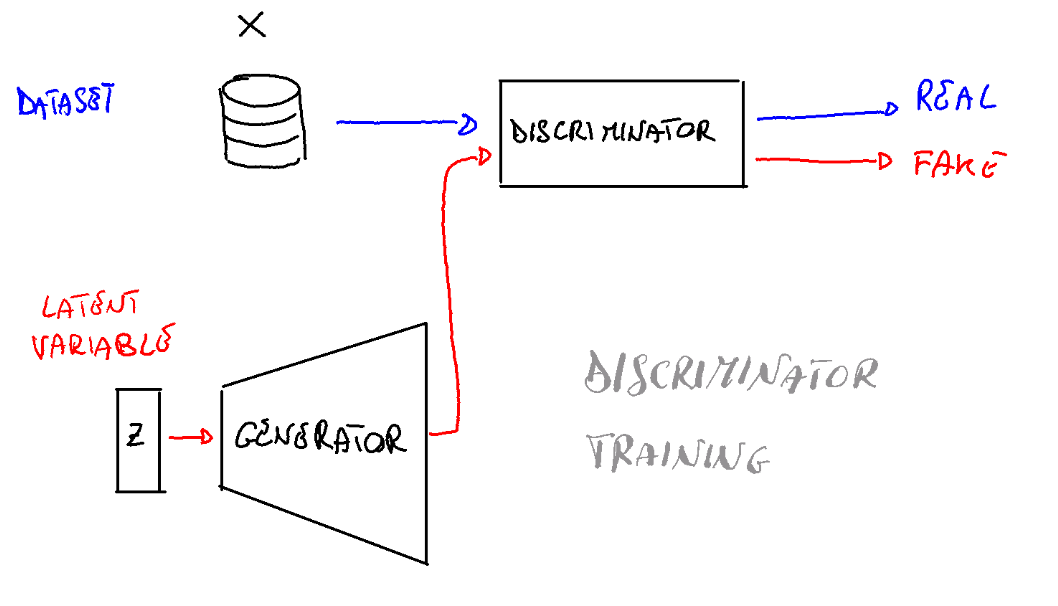 X
DATASET
DISCRIMINATOR
REAL
FAKE
LATENT
VARIABLE
Z
GENERATOR
DISCRIMINATOR
TRAINING